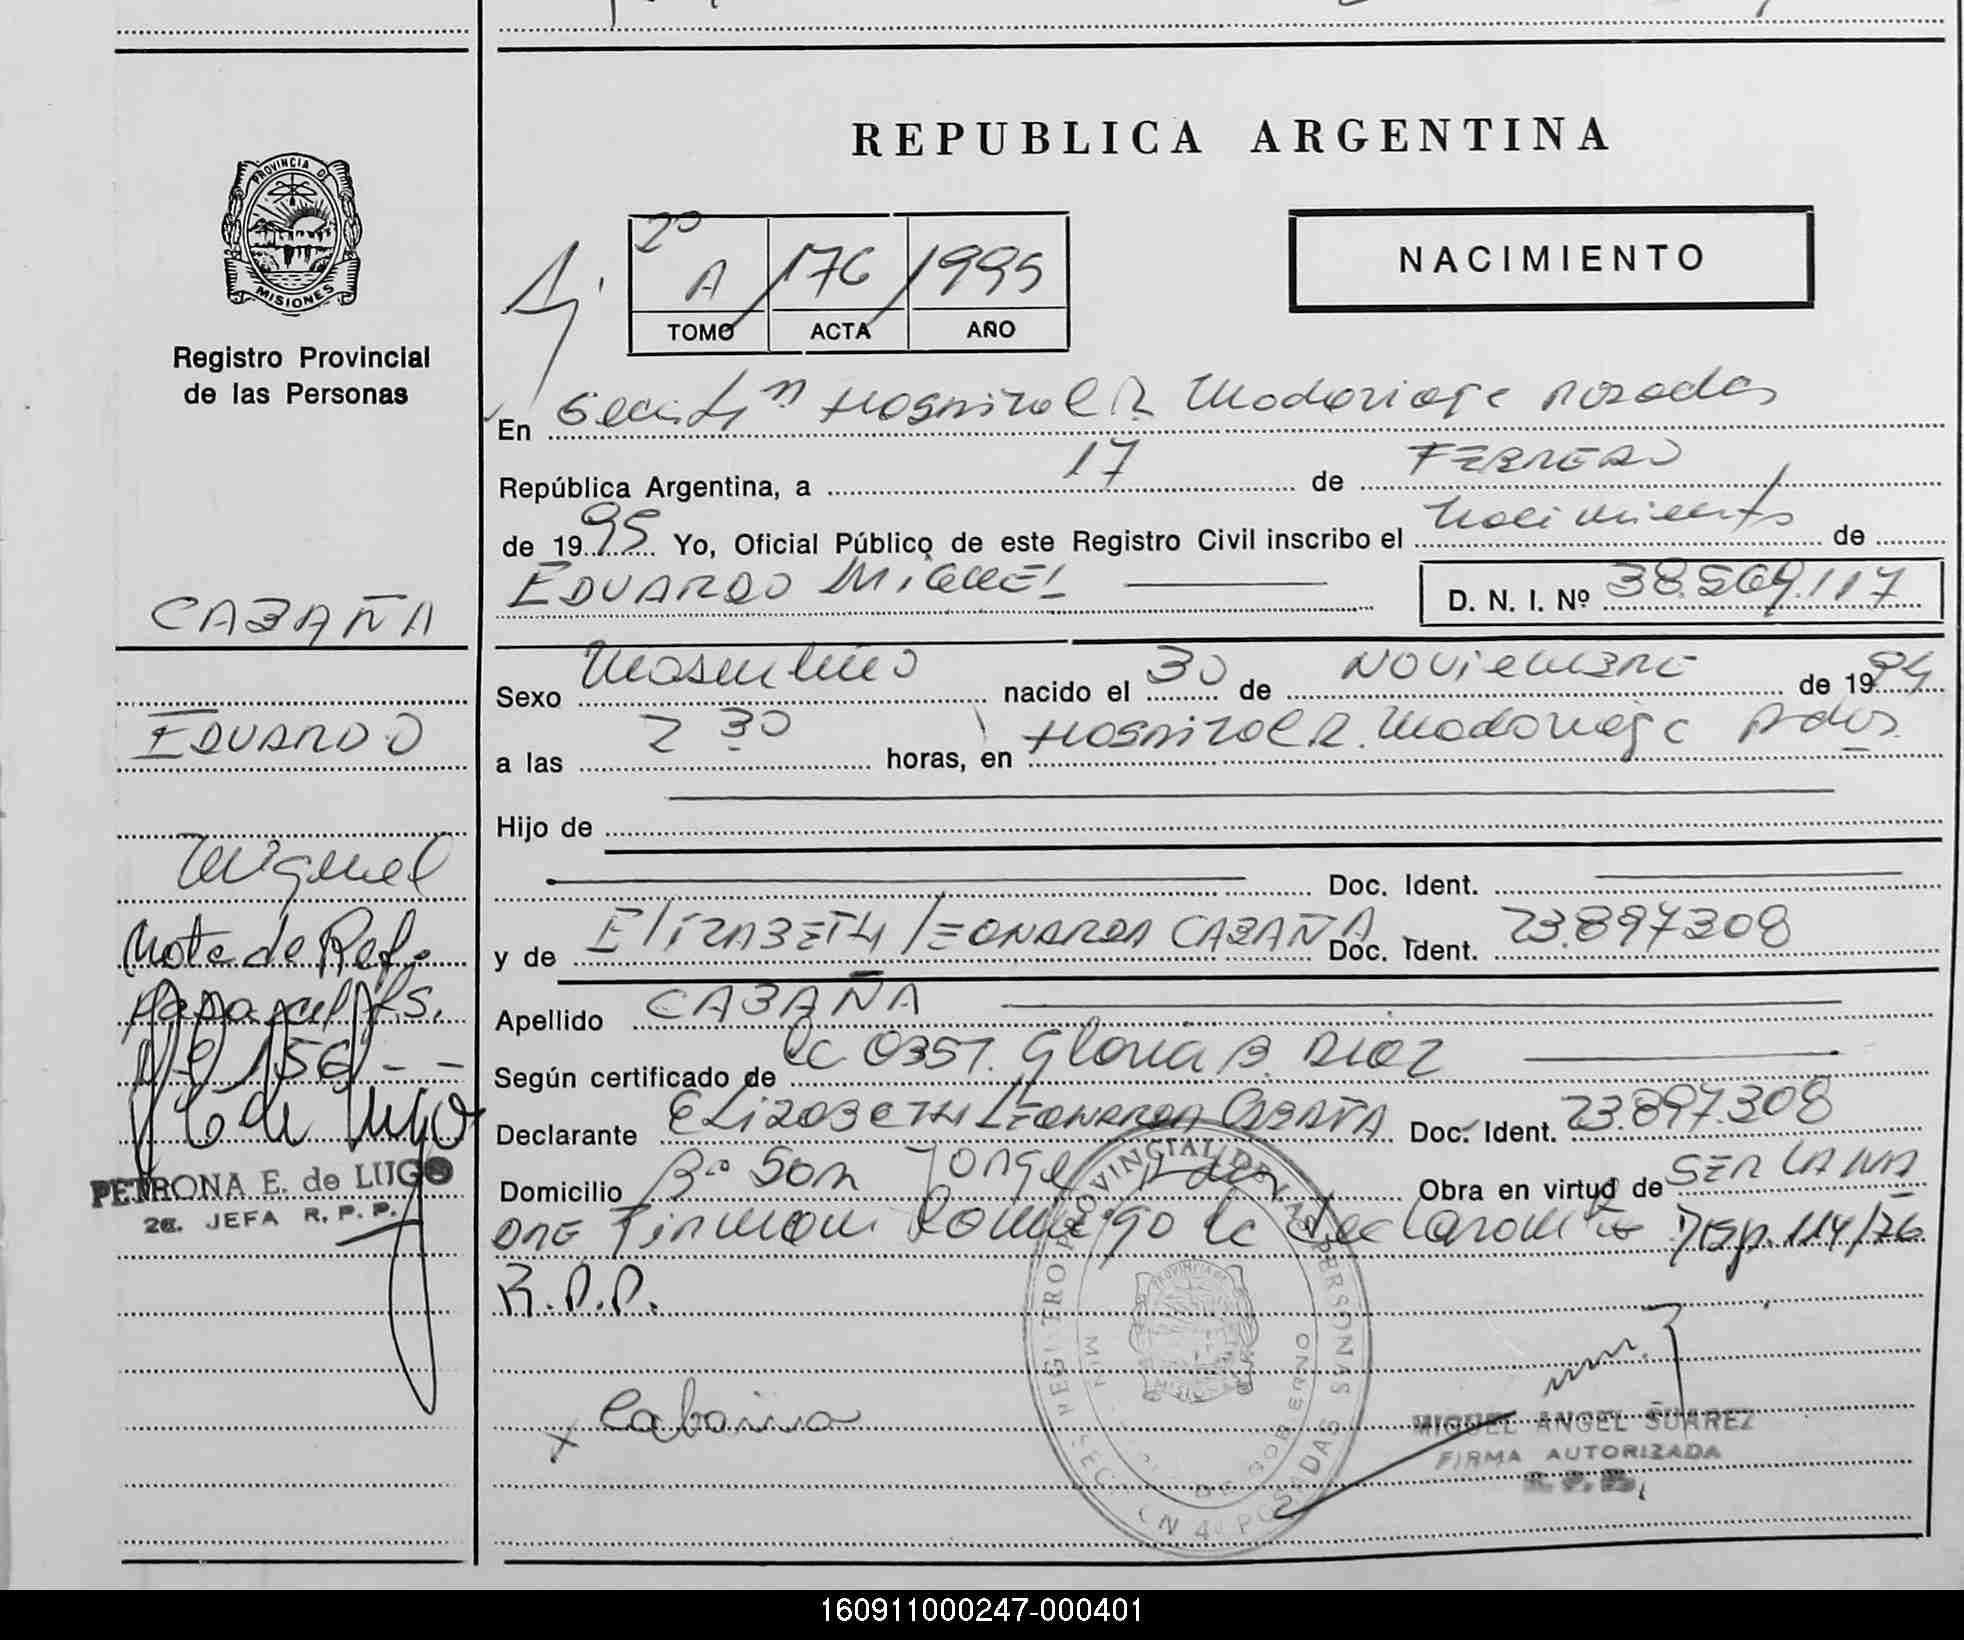 REPUBLICA ARGENTINA
PROVINCIA DE
MISIONES
Registro Provincial
de las Personas
NACIMIENTO
2º
A / 176 / 1995
TOMO ACTA AÑO
En Hospital R. Madariaga Posadas
República Argentina, a 17 de FEBRERO
de 1995 Yo, Oficial Público de este Registro Civil inscribo el Nacimiento de
EDUARDO MIGUEL D. N. I. Nº 38.569.117
CABAÑA
EDUARDO
Miguel
Nota de Ref.
Nº 156/--
E de Lugo
PETRONA E. de LUGO
2a. JEFA R. P. P.
Sexo Masculino nacido el 30 de NOVIEMBRE de 1994
a las 2 30 horas, en Hospital R. Madariaga Pdas.
Hijo de
Doc. Ident.
y de ELIZABETH LEONARDA CABAÑA Doc. Ident. 23.897308
Apellido CABAÑA
Según certificado de la 0357. Gloria B. Diaz
Declarante ELIZABETH LEONARDA CABAÑA Doc. Ident. 23.897.308
Domicilio Bº San Jorge Pdas Obra en virtud de SER LA MA
DRE Firman Conmigo la declarante Disp. 114/76
R.P.P.
x Cabaña
REGISTRO PROVINCIAL DE LAS PERSONAS
MIN DE GOBIERNO
SECCION 4ª POSADAS
MIGUEL ANGEL SUAREZ
FIRMA AUTORIZADA
R. P. P.
160911000247-000401